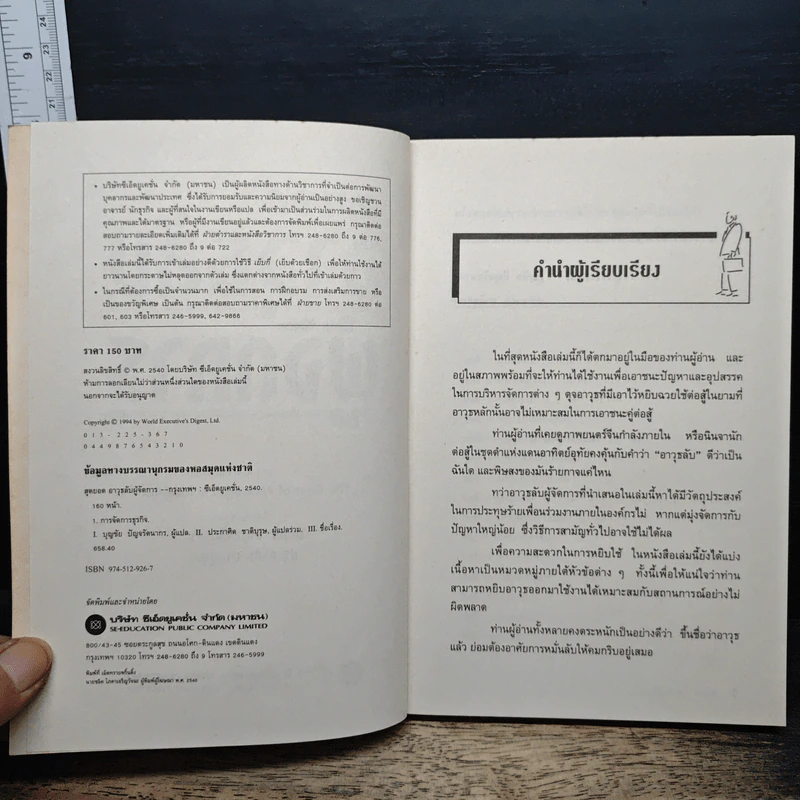 • บริษัทซีเอ็ดยูเคชั่น จำกัด (มหาชน) เป็นผู้ผลิตหนังสือทางด้านวิชาการที่จำเป็นต่อการพัฒนา
บุคลากรและพัฒนาประเทศ ซึ่งได้รับการยอมรับและความนิยมจากผู้อ่านเป็นอย่างสูง ขอเชิญชวน
อาจารย์ นักธุรกิจ และผู้ที่สนใจในงานเขียนหรือแปล เพื่อเข้ามาเป็นส่วนร่วมในการผลิตหนังสือที่มี
คุณภาพและได้มาตรฐาน หรือผู้ที่มีงานเขียนอยู่แล้วและต้องการจัดพิมพ์เพื่อเผยแพร่ กรุณาติดต่อ
สอบถามรายละเอียดเพิ่มเติมได้ที่ ฝ่ายตำราและหนังสือวิชาการ โทรฯ 248-6280 ถึง 9 ต่อ 776,
777 หรือโทรสาร 248-6280 ถึง 9 ต่อ 722
• หนังสือเล่มนี้ได้รับการเข้าเล่มอย่างดีด้วยการใช้วิธี เย็บกี่ (เย็บด้วยเชือก) เพื่อให้ท่านใช้งานได้
ยาวนานโดยกระดาษไม่หลุดออกจากตัวเล่ม ซึ่งแตกต่างจากหนังสือทั่วไปที่เข้าเล่มด้วยกาว
• ในกรณีที่ต้องการซื้อเป็นจำนวนมาก เพื่อใช้ในการสอน การฝึกอบรม การส่งเสริมการขาย หรือ
เป็นของขวัญพิเศษ เป็นต้น กรุณาติดต่อสอบถามราคาพิเศษได้ที่ ฝ่ายขาย โทรฯ 248-6280 ต่อ
601, 603 หรือโทรสาร 246-5999, 642-9866
ราคา 150 บาท
สงวนลิขสิทธิ์ © พ.ศ. 2540 โดยบริษัท ซีเอ็ดยูเคชั่น จำกัด (มหาชน)
ห้ามการลอกเลียนไม่ว่าส่วนหนึ่งส่วนใดของหนังสือเล่มนี้
นอกจากจะได้รับอนุญาต
Copyright © 1994 by World Executive's Digest, Ltd.
013-225-367
0449876543210
ข้อมูลทางบรรณานุกรมของหอสมุดแห่งชาติ
สุดยอด อาวุธลับผู้จัดการ --กรุงเทพฯ : ซีเอ็ดยูเคชั่น, 2540.
160 หน้า.
1. การจัดการธุรกิจ.
I. บุญชัย ปัญจรัตนากร, ผู้แปล. II. ประกาศิต ชาติบุรุษ, ผู้แปลร่วม. III. ชื่อเรื่อง.
658.40
ISBN 974-512-926-7
จัดพิมพ์และจำหน่ายโดย
บริษัท ซีเอ็ดยูเคชั่น จำกัด (มหาชน)
SE-EDUCATION PUBLIC COMPANY LIMITED
800/43-45 ซอยตระกูลสุข ถนนอโศก-ดินแดง เขตดินแดง
กรุงเทพฯ 10320 โทรฯ 248-6280 ถึง 9 โทรสาร 246-5999
พิมพ์ที่ เม็ดทรายพริ้นติ้ง
ผู้พิมพ์ผู้โฆษณา พ.ศ. 2540
คำนำผู้เรียบเรียง
ในที่สุดหนังสือเล่มนี้ก็ได้ตกมาอยู่ในมือของท่านผู้อ่าน และ
อยู่ในสภาพพร้อมที่จะให้ท่านได้ใช้งานเพื่อเอาชนะปัญหาและอุปสรรค
ในการบริหารจัดการต่าง ๆ ดุจอาวุธที่มีเอาไว้หยิบฉวยใช้ต่อสู้ในยามที่
อาวุธหลักนั้นอาจไม่เหมาะสมในการเอาชนะคู่ต่อสู้
ท่านผู้อ่านที่เคยดูภาพยนตร์จีนกำลังภายใน หรือนินจานัก
ต่อสู้ในชุดดำแห่งแดนอาทิตย์อุทัยคงคุ้นกับคำว่า “อาวุธลับ” ดีว่าเป็น
ฉันใด และพิษสงของมันร้ายกาจแค่ไหน
ทว่าอาวุธลับผู้จัดการที่นำเสนอในเล่มนี้หาได้มีวัตถุประสงค์
ในการประทุษร้ายเพื่อนร่วมงานภายในองค์กรไม่ หากแต่มุ่งจัดการกับ
ปัญหาใหญ่น้อย ซึ่งวิธีการสามัญทั่วไปอาจใช้ไม่ได้ผล
เพื่อความสะดวกในการหยิบใช้ ในหนังสือเล่มนี้ยังได้แบ่ง
เนื้อหาเป็นหมวดหมู่ภายใต้หัวข้อต่าง ๆ ทั้งนี้เพื่อให้แน่ใจว่าท่าน
สามารถหยิบอาวุธออกมาใช้งานได้เหมาะสมกับสถานการณ์อย่างไม่
ผิดพลาด
ท่านผู้อ่านทั้งหลายคงตระหนักเป็นอย่างดีว่า ขึ้นชื่อว่าอาวุธ
แล้ว ย่อมต้องอาศัยการหมั่นลับให้คมกริบอยู่เสมอ